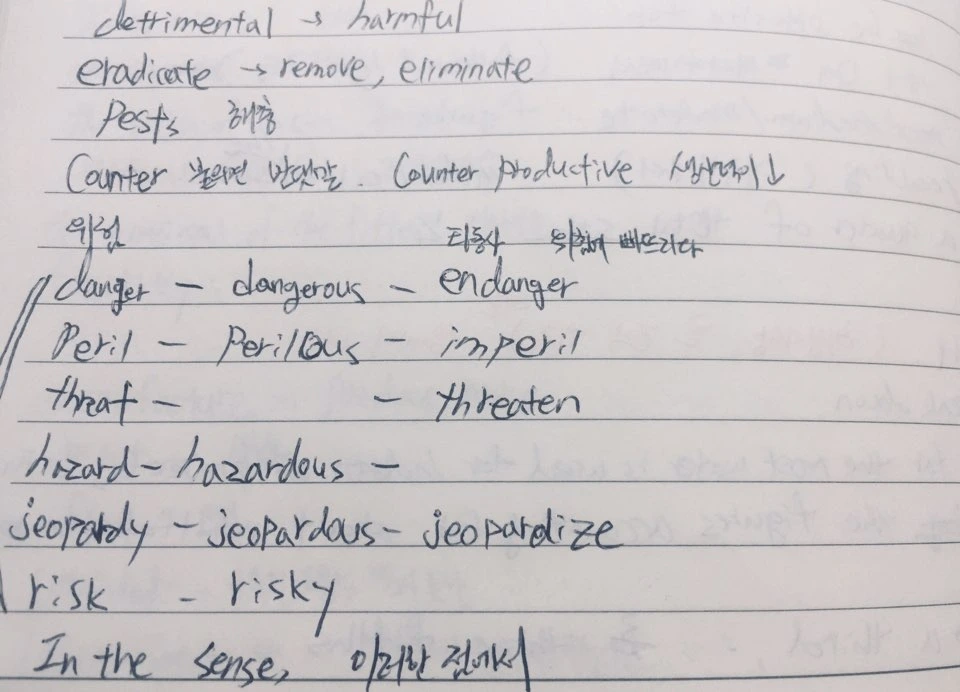 detrimental → harmful
eradicate → remove, eliminate
Pests 해충
Counter 붙으면 반댓말. Counter productive 생산력이↓
위험 타동사 위험에 빠뜨리다
danger – dangerous – endanger
Peril – Perilous – imperil
threat – – threaten
hazard – hazardous –
jeopardy – jeopardous – jeopardize
risk – risky
In the sense, 이러한 점에서